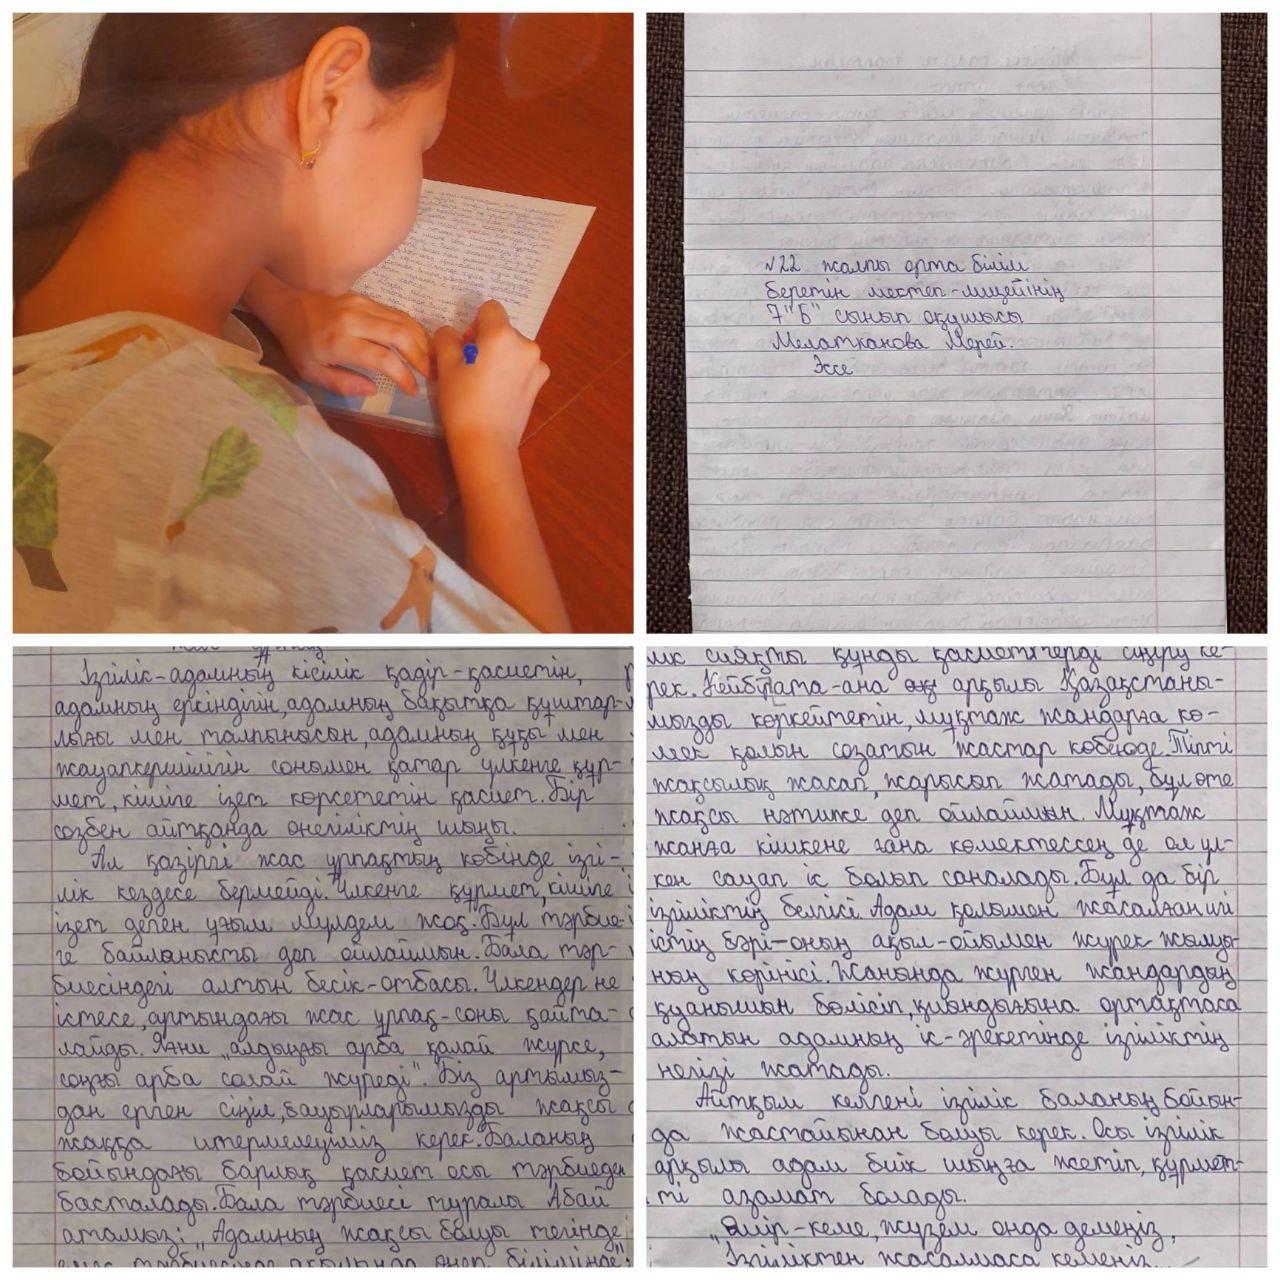 №22 жалпы орта білім
беретін мектеп-лицейінің
7"Б" сынып оқушысы
Мелатканова Мерей.
Эссе
Ізгілік-адамның кісілік қадір-қасиетін,
адамның еркіндігін, адамның бақытқа құштар-
лығы мен талпынысын, адамның құқы мен
жауапкершілігін сонымен қатар үлкенге құр-
мет, кішіге ізет көрсететін қасиет. Бір
сөзбен айтқанда өнегеліктің шыңы.
Ал қазіргі жас ұрпақтың көбінде ізгі-
лік кездесе бермейді. Үлкенге құрмет, кішіге
ізет деген ұғым мүлдем жоқ. Бұл тәрбие-
ге байланысты деп ойлаймын. Бала тәр-
биесіндегі алтын бесік-отбасы. Үлкендер не
істесе, артындағы жас ұрпақ-соны қайта-
лайды. Яғни „алдыңғы арба қалай жүрсе,
соңғы арба солай жүреді". Біз артымыз-
дан ерген сіңілі, бауырларымызды жақсы
жаққа итермелеуіміз керек. Баланың
бойындағы барлық қасиет осы тәрбиеден
басталады. Бала тәрбиесі туралы Абай
атамыз: „Адамның жақсы болуы тегінде
емес, тәрбиесінде, ақылында, өнер, білімінде"
лік сияқты құнды қасиеттерді сіңіру ке-
рек. Кейбір ата-ана арқылы Қазақстаны-
мызды көркейтетін, мұқтаж жандарға кө-
мек қолын созатын жастар көбеюде. Тіпті
жақсылық жасап, жарысып жатады, бұл өте
жақсы нәтиже деп ойлаймын. Мұқтаж
жанға кішкене ғана көмектессең де ол үл-
кен сауап іс болып саналады. Бұл да бір
ізгіліктің белгісі. Адам қолымен жасалған игі
істің бәрі-оның ақыл-ойымен жүрек жылуы-
ның көрінісі. Жанында жүрген жандардың
қуанышын бөлісіп, қиындығына ортақтаса
алатын адамның іс-әрекетінде ізгіліктің
негізі жатады.
Айтқым келгені ізгілік баланың бойын-
да жастайынан болуы керек. Осы ізгілік
арқылы адам биік шыңға жетіп, құрмет-
ті азамат болады.
„Өмір-кеме, жүзем онда демеңіз,
Ізгіліктен жасалмаса кемеңіз...